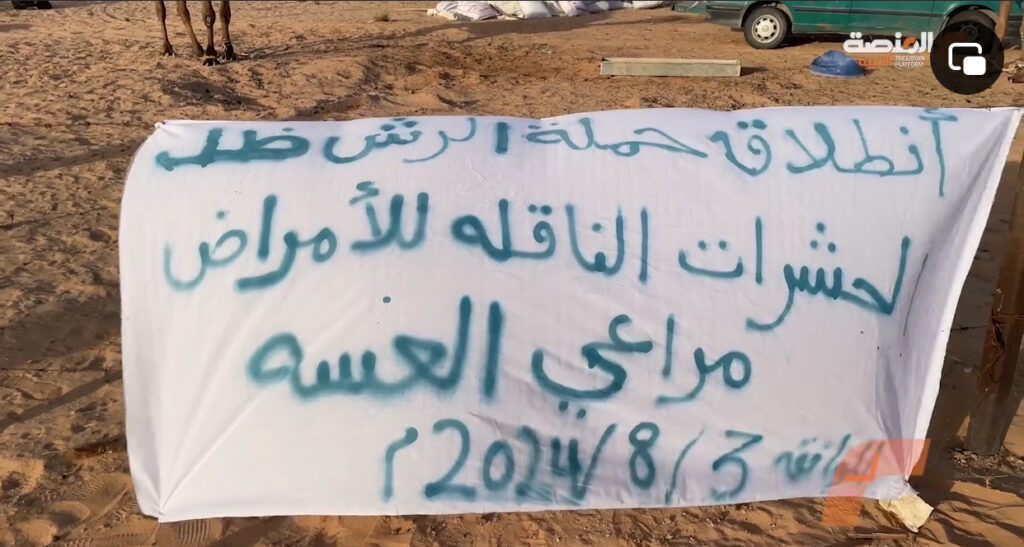 المنصة
THE LIBYAN
PLATFORM
أنطلاق حملة الرش ضد
لحشرات الناقله للأمراض
مراعي العسه
الموافق 3/8/2024م